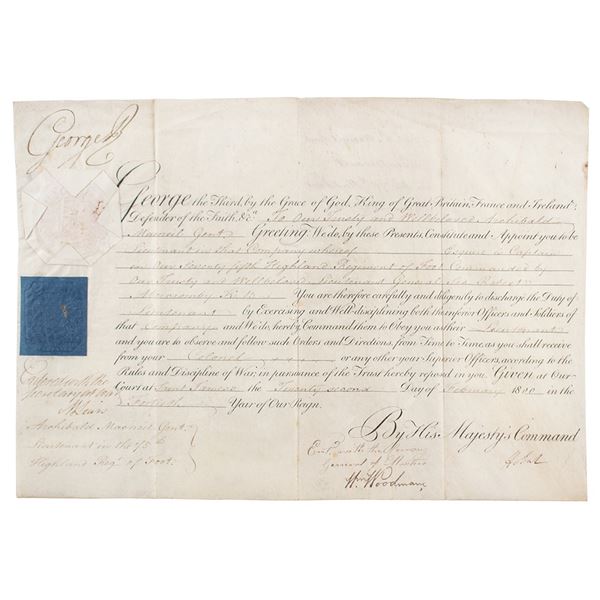 George R
George the Third, by the Grace of God, King of Great Britain, France and Ireland,
Defender of the Faith, &c. To Our Trusty and Wellbeloved Archibald
Macneil Gent. Greeting. We do, by these Presents, Constitute and Appoint you to be
Lieutenant in that Company whereof Esquire is Captain
in Our Seventy fifth Highland Regiment of Foot Commanded by
Our Trusty and Wellbeloved Lieutenant General Sir Robert
Abercromby K:B: You are therefore carefully and diligently to discharge the Duty of
Lieutenant by Exercising and Well-disciplining both the inferior Officers and Soldiers of
that Company and We do hereby Command them to Obey you as their Lieutenant
and you are to observe and follow such Orders and Directions, from Time to Time, as you shall receive
from your Colonel or any other your Superior Officers, according to the
Rules and Discipline of War, in pursuance of the Trust hereby reposed in you. Given at Our
Court at Saint James's the Twenty second Day of February 1800 in the
Fortieth Year of Our Reign.
By His Majesty's Command
Entd. with the
General of Musters
Wm Woodman
Entered with the
Secretary at War
Archibald Macneil Gent.
Lieutenant in the 75th
Highland Regt. of Foot.